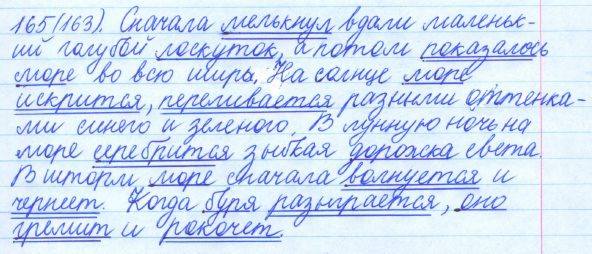 165(163). Сначала мелькнул вдали маленьк-
ий голубой лоскуток, а потом показалось
море во всю ширь. На солнце море
искрится, переливается разными оттенка-
ми синего и зеленого. В лунную ночь на
море серебрится зыбкая дорожка света.
В шторм море сначала волнуется и
чернеет. Когда буря разыграется, оно
гремит и рокочет.